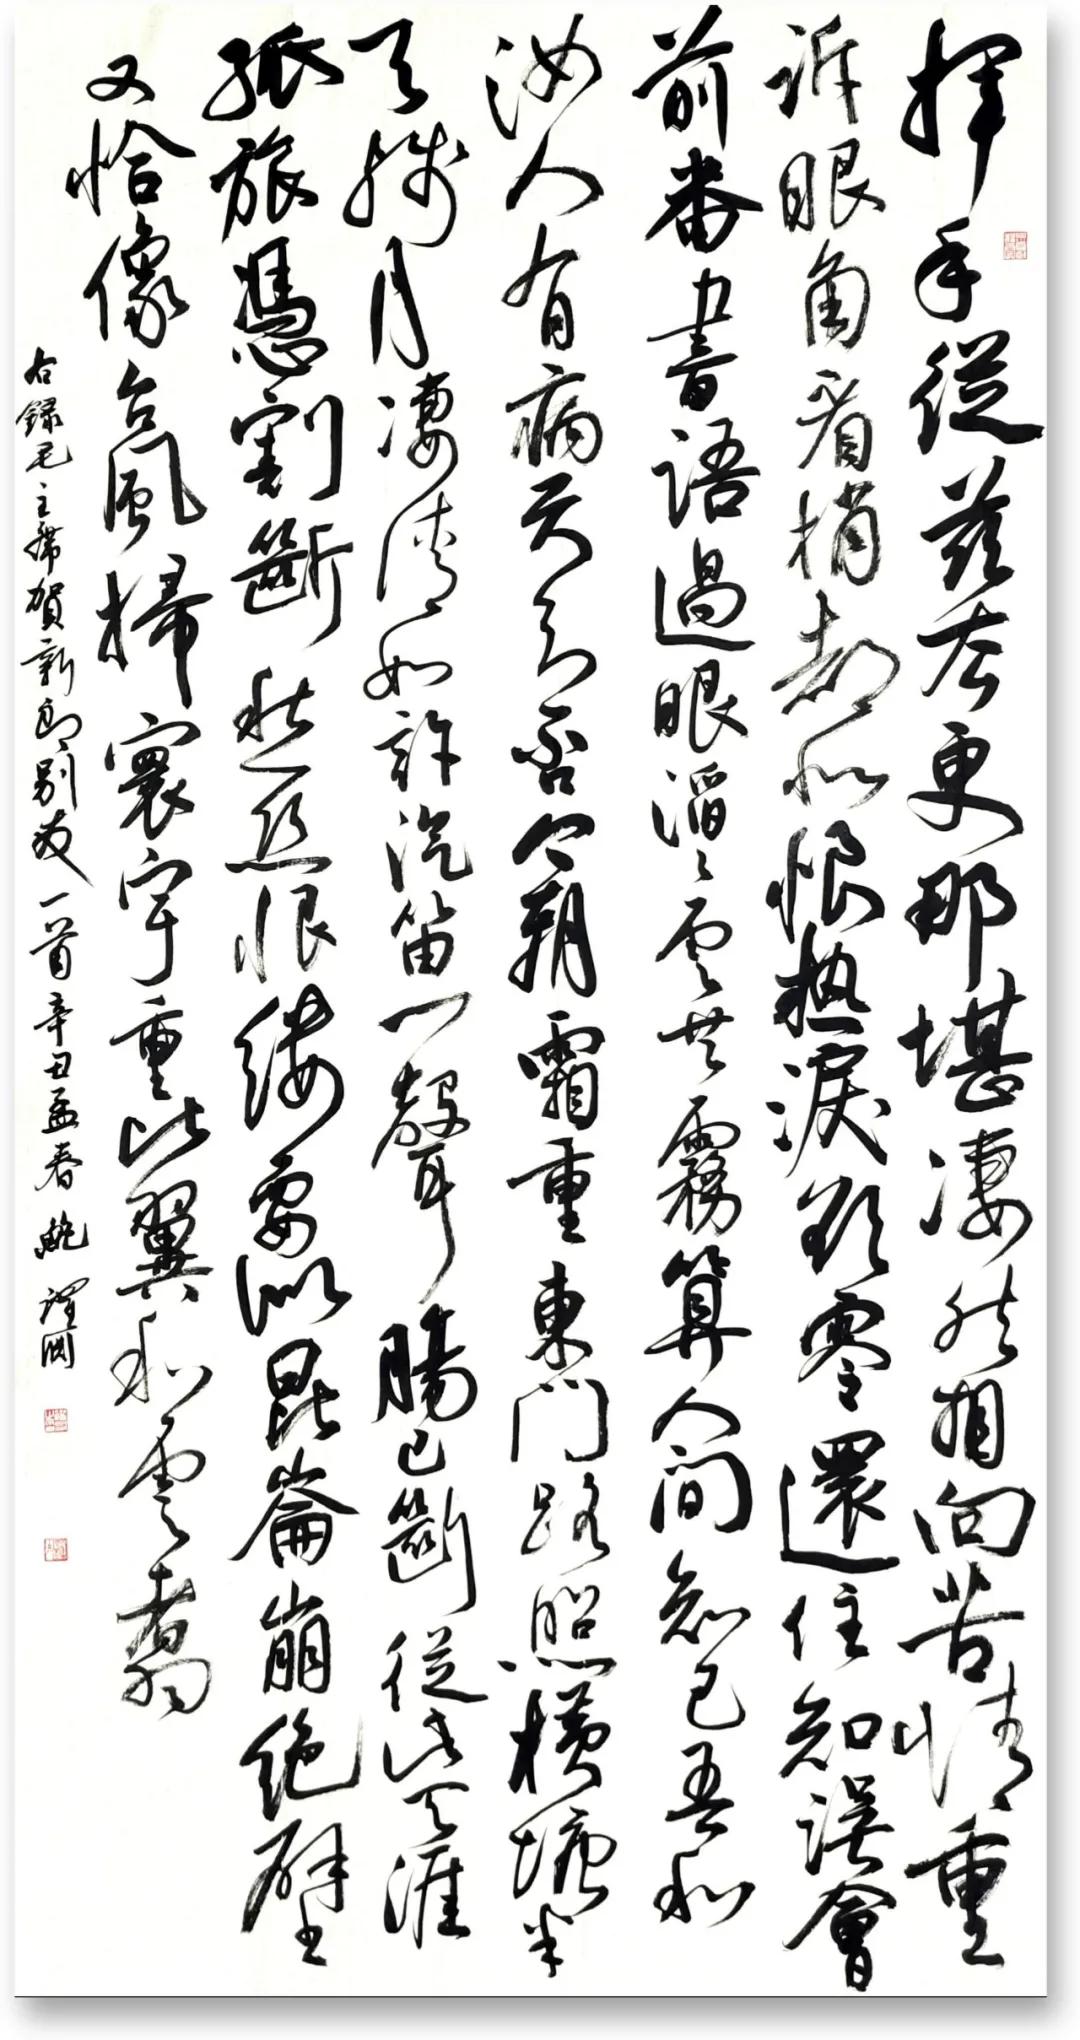 揮手從茲去更那堪淒然相向苦情重
訴眼角眉梢都似恨熱淚欲零還住知誤會
前番書語過眼滔〻雲共霧算人間知己吾和
汝人有病天知否今朝霜重東門路照橫塘半
天殘月淒清如許汽笛一聲腸已斷從此天涯
孤旅憑割斷愁絲恨縷要似昆崙崩絕壁
又恰像台風掃寰宇重比翼和雲翥
右錄毛主席賀新郎別友一首辛丑孟春鮑